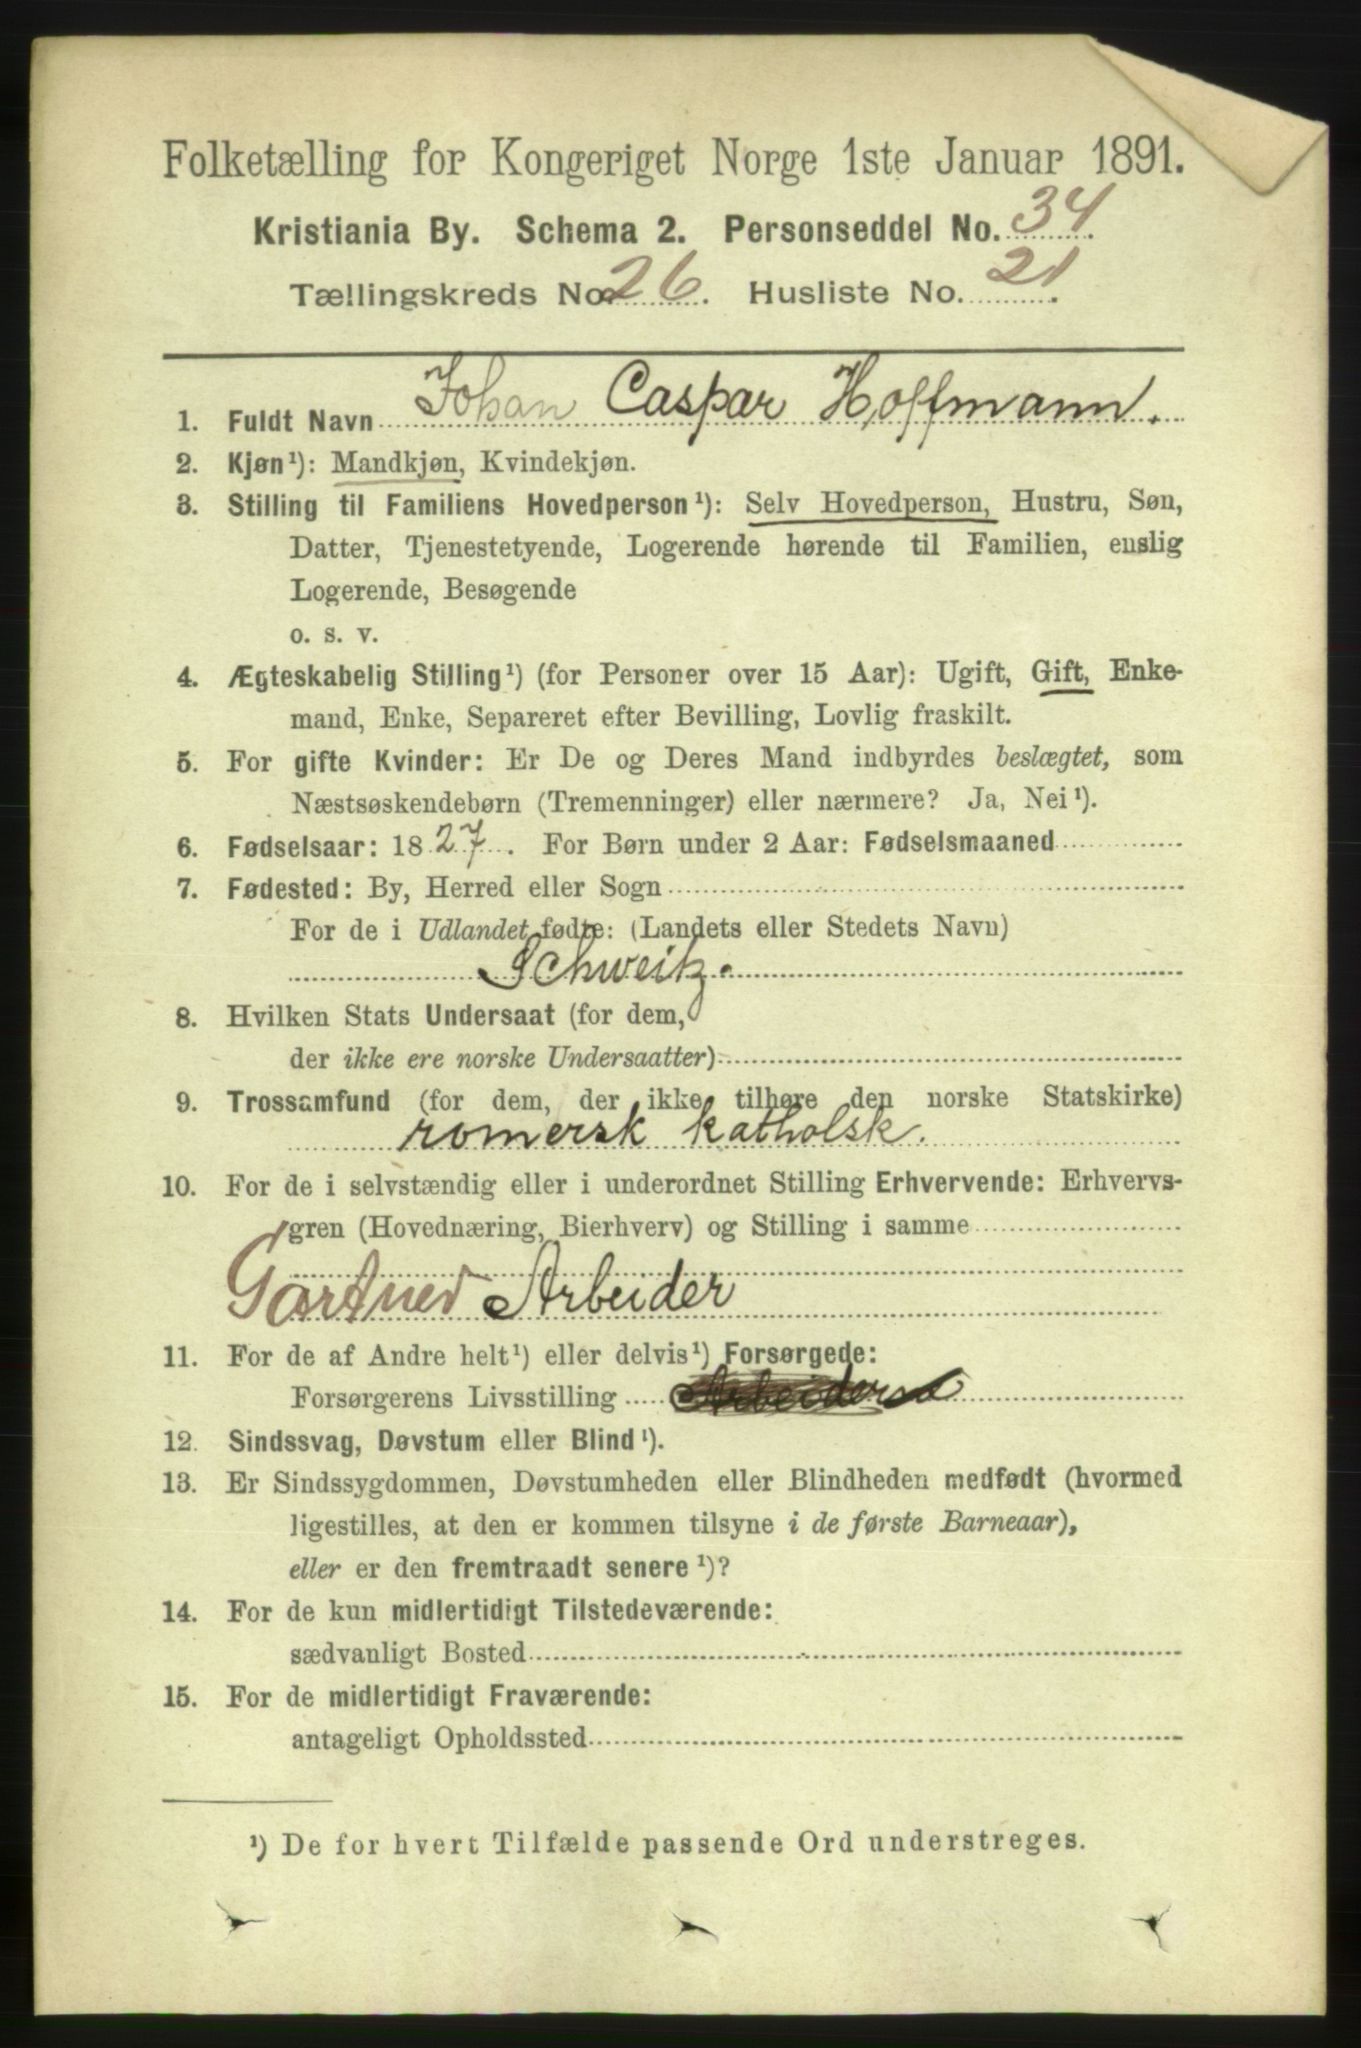 Folketælling for Kongeriget Norge 1ste Januar 1891.
Kristiania By. Schema 2. Personseddel No. 34.
Tællingskreds No. 26. Husliste No. 21.
1. Fuldt Navn Johan Caspar Hoffmann.
2. Kjøn¹): Mandkjøn, Kvindekjøn.
3. Stilling til Familiens Hovedperson¹): Selv Hovedperson, Hustru, Søn,
Datter, Tjenestetyende, Logerende hørende til Familien, enslig
Logerende, Besøgende
o. s. v.
4. Ægteskabelig Stilling¹) (for Personer over 15 Aar): Ugift, Gift, Enke-
mand, Enke, Separeret efter Bevilling, Lovlig fraskilt.
5. For gifte Kvinder: Er De og Deres Mand indbyrdes beslægtet, som
Næstsøskendebørn (Tremenninger) eller nærmere? Ja, Nei¹).
6. Fødselsaar: 1827. For Børn under 2 Aar: Fødselsmaaned
7. Fødested: By, Herred eller Sogn
For de i Udlandet fødte: (Landets eller Stedets Navn)
Schweitz.
8. Hvilken Stats Undersaat (for dem,
der ikke ere norske Undersaatter)
9. Trossamfund (for dem, der ikke tilhøre den norske Statskirke)
romersk katholsk.
10. For de i selvstændig eller i underordnet Stilling Erhvervende: Erhvervs-
gren (Hovednæring, Bierhverv) og Stilling i samme
Gartner Arbeider
11. For de af Andre helt¹) eller delvis¹) Forsørgede:
Forsørgerens Livsstilling Arbeider
12. Sindssvag, Døvstum eller Blind¹).
13. Er Sindssygdommen, Døvstumheden eller Blindheden medfødt (hvormed
ligestilles, at den er kommen tilsyne i de første Barneaar),
eller er den fremtraadt senere¹)?
14. For de kun midlertidigt Tilstedeværende:
sædvanligt Bosted
15. For de midlertidigt Fraværende:
antageligt Opholdssted
¹) De for hvert Tilfælde passende Ord understreges.